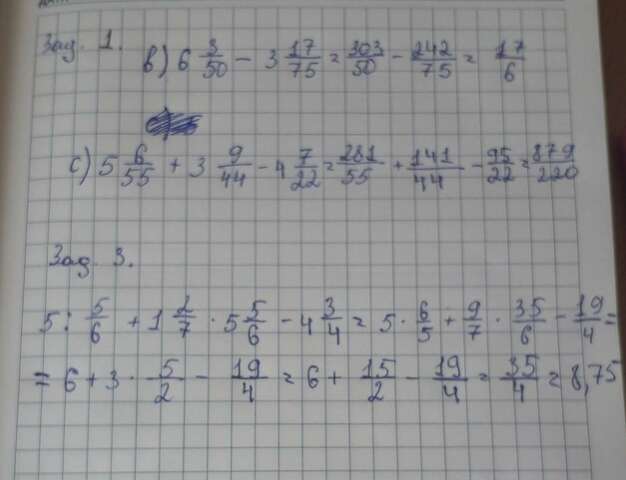 Зад. 1.
b) 6 3/50 - 3 17/75 = 303/50 - 242/75 = 17/6
c) 5 6/55 + 3 9/44 - 4 7/22 = 281/55 + 141/44 - 95/22 = 879/220
Зад. 3.
5 : 5/6 + 1 2/7 · 5 5/6 - 4 3/4 = 5 · 6/5 + 9/7 · 35/6 - 19/4 =
= 6 + 3 · 5/2 - 19/4 = 6 + 15/2 - 19/4 = 35/4 = 8,75